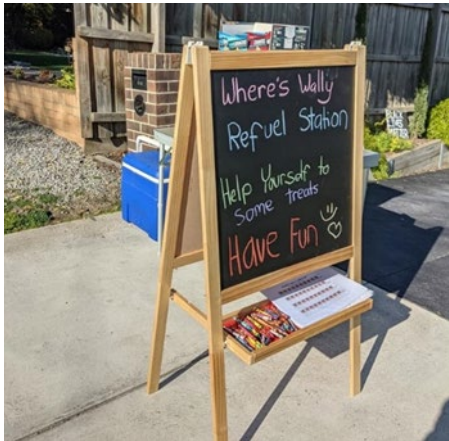 Where's Wally
Refuel Station
Help Yourself to
Some treats
Have Fun